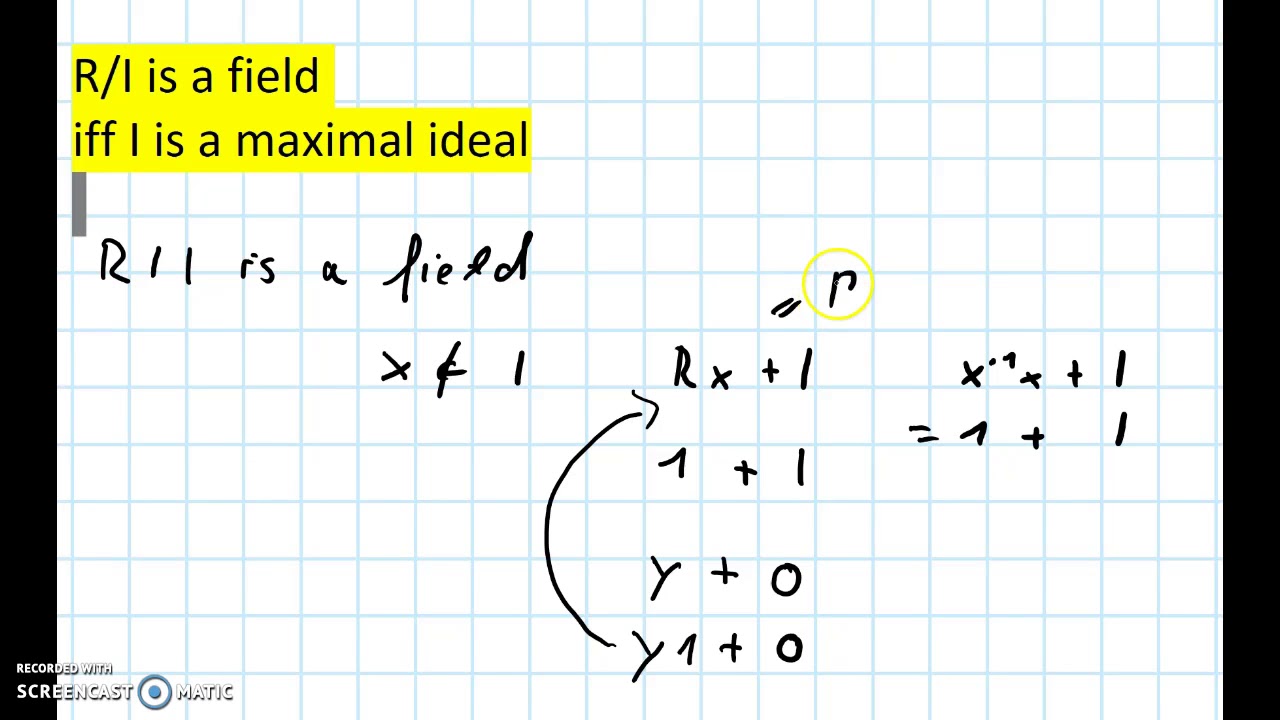 R/I is a field
iff I is a maximal ideal
R / I is a field
= R
x ∉ I
Rx + I
x⁻¹x + I
= 1 + I
1 + I
y + 0
y1 + 0
RECORDED WITH
SCREENCAST MATIC